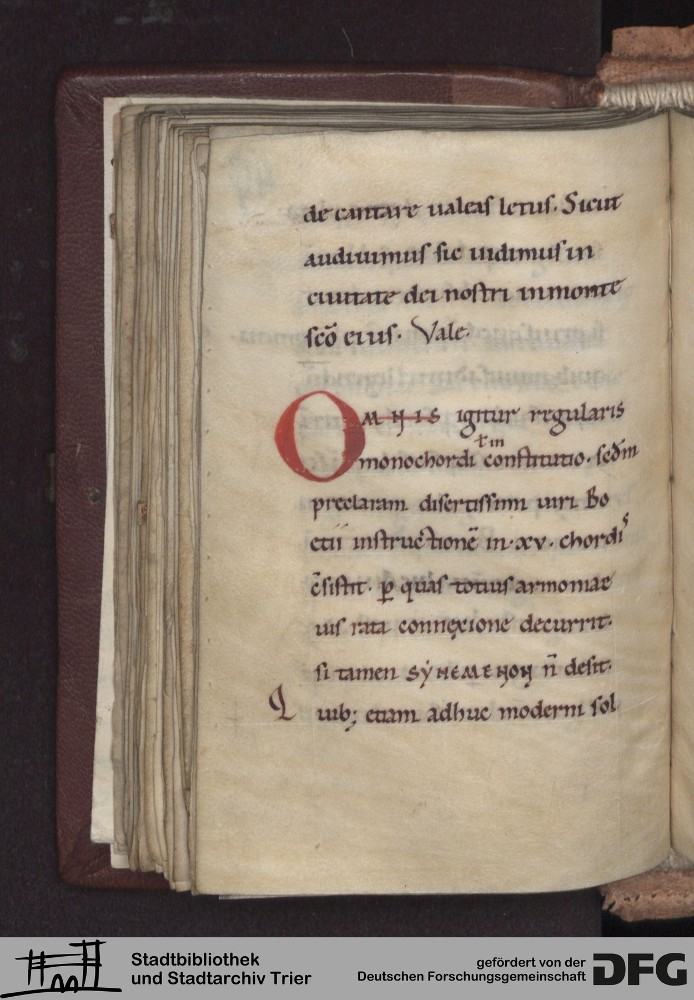 de cantare ualeas letus. Sicut
audiuimus sic uidimus in
ciuitate dei nostri in monte
scō eius. Vale.
OMNIS igitur regularis
ł in
monochordi constitutio. scđm
preclaram disertissimi uiri Bo
etii instructionē in .xv. chordis
c̄sistit. ꝑ quas totius armoniae
uis rata connexione decurrit.
si tamen SYNEMENON n̄ desit.
Quib; etiam adhuc moderni sol
Stadtbibliothek
und Stadtarchiv Trier
gefördert von der
Deutschen Forschungsgemeinschaft
DFG